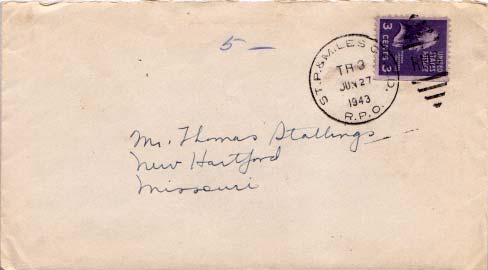 5 —
ST. P. & MILES C.
TR 3
JUN 27
1943
R.P.O.
3 CENTS 3
UNITED
STATES
Mr. Thomas Stallings
New Hartford
Missouri